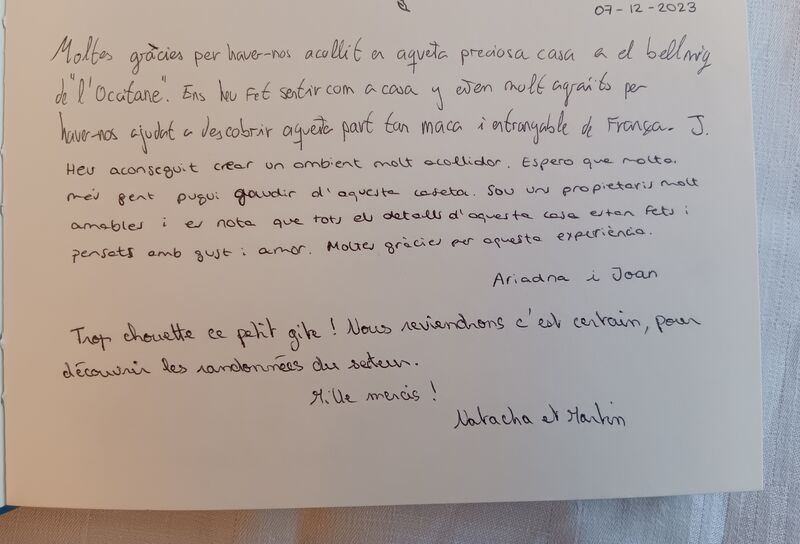 07-12-2023
Moltes gràcies per haver-nos acollit en aquesta preciosa casa a el bellmig
de "l'Occitane". Ens heu fet sentir com a casa y estem molt agraïts per
haver-nos ajudat a descobrir aquesta part tan maca i entrangable de França. J.
Heu aconseguit crear un ambient molt acollidor. Espero que molta
més gent pugui gaudir d'aquesta caseta. Sou uns propietaris molt
amables i es nota que tots el detalls d'aquesta casa estan fets i
pensats amb gust i amor. Moltes gràcies per aquesta experiència.
Ariadna i Joan
Trop chouette ce petit gîte ! Nous reviendrons c'est certain, pour
découvrir les randonnées du secteur.
Mille mercis !
Natacha et Martin